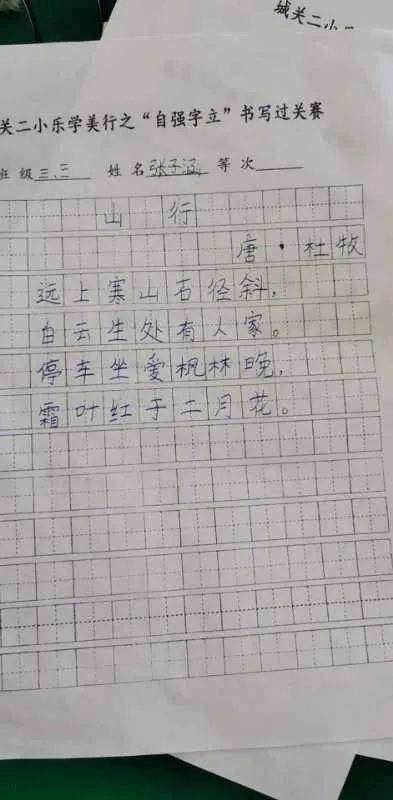 城关二小
关二小乐学美行之“自强字立”书写过关赛
班 级 三.三 姓 名 张子涵 等 次
山 行
唐·杜牧
远上寒山石径斜,
白云生处有人家。
停车坐爱枫林晚,
霜叶红于二月花。